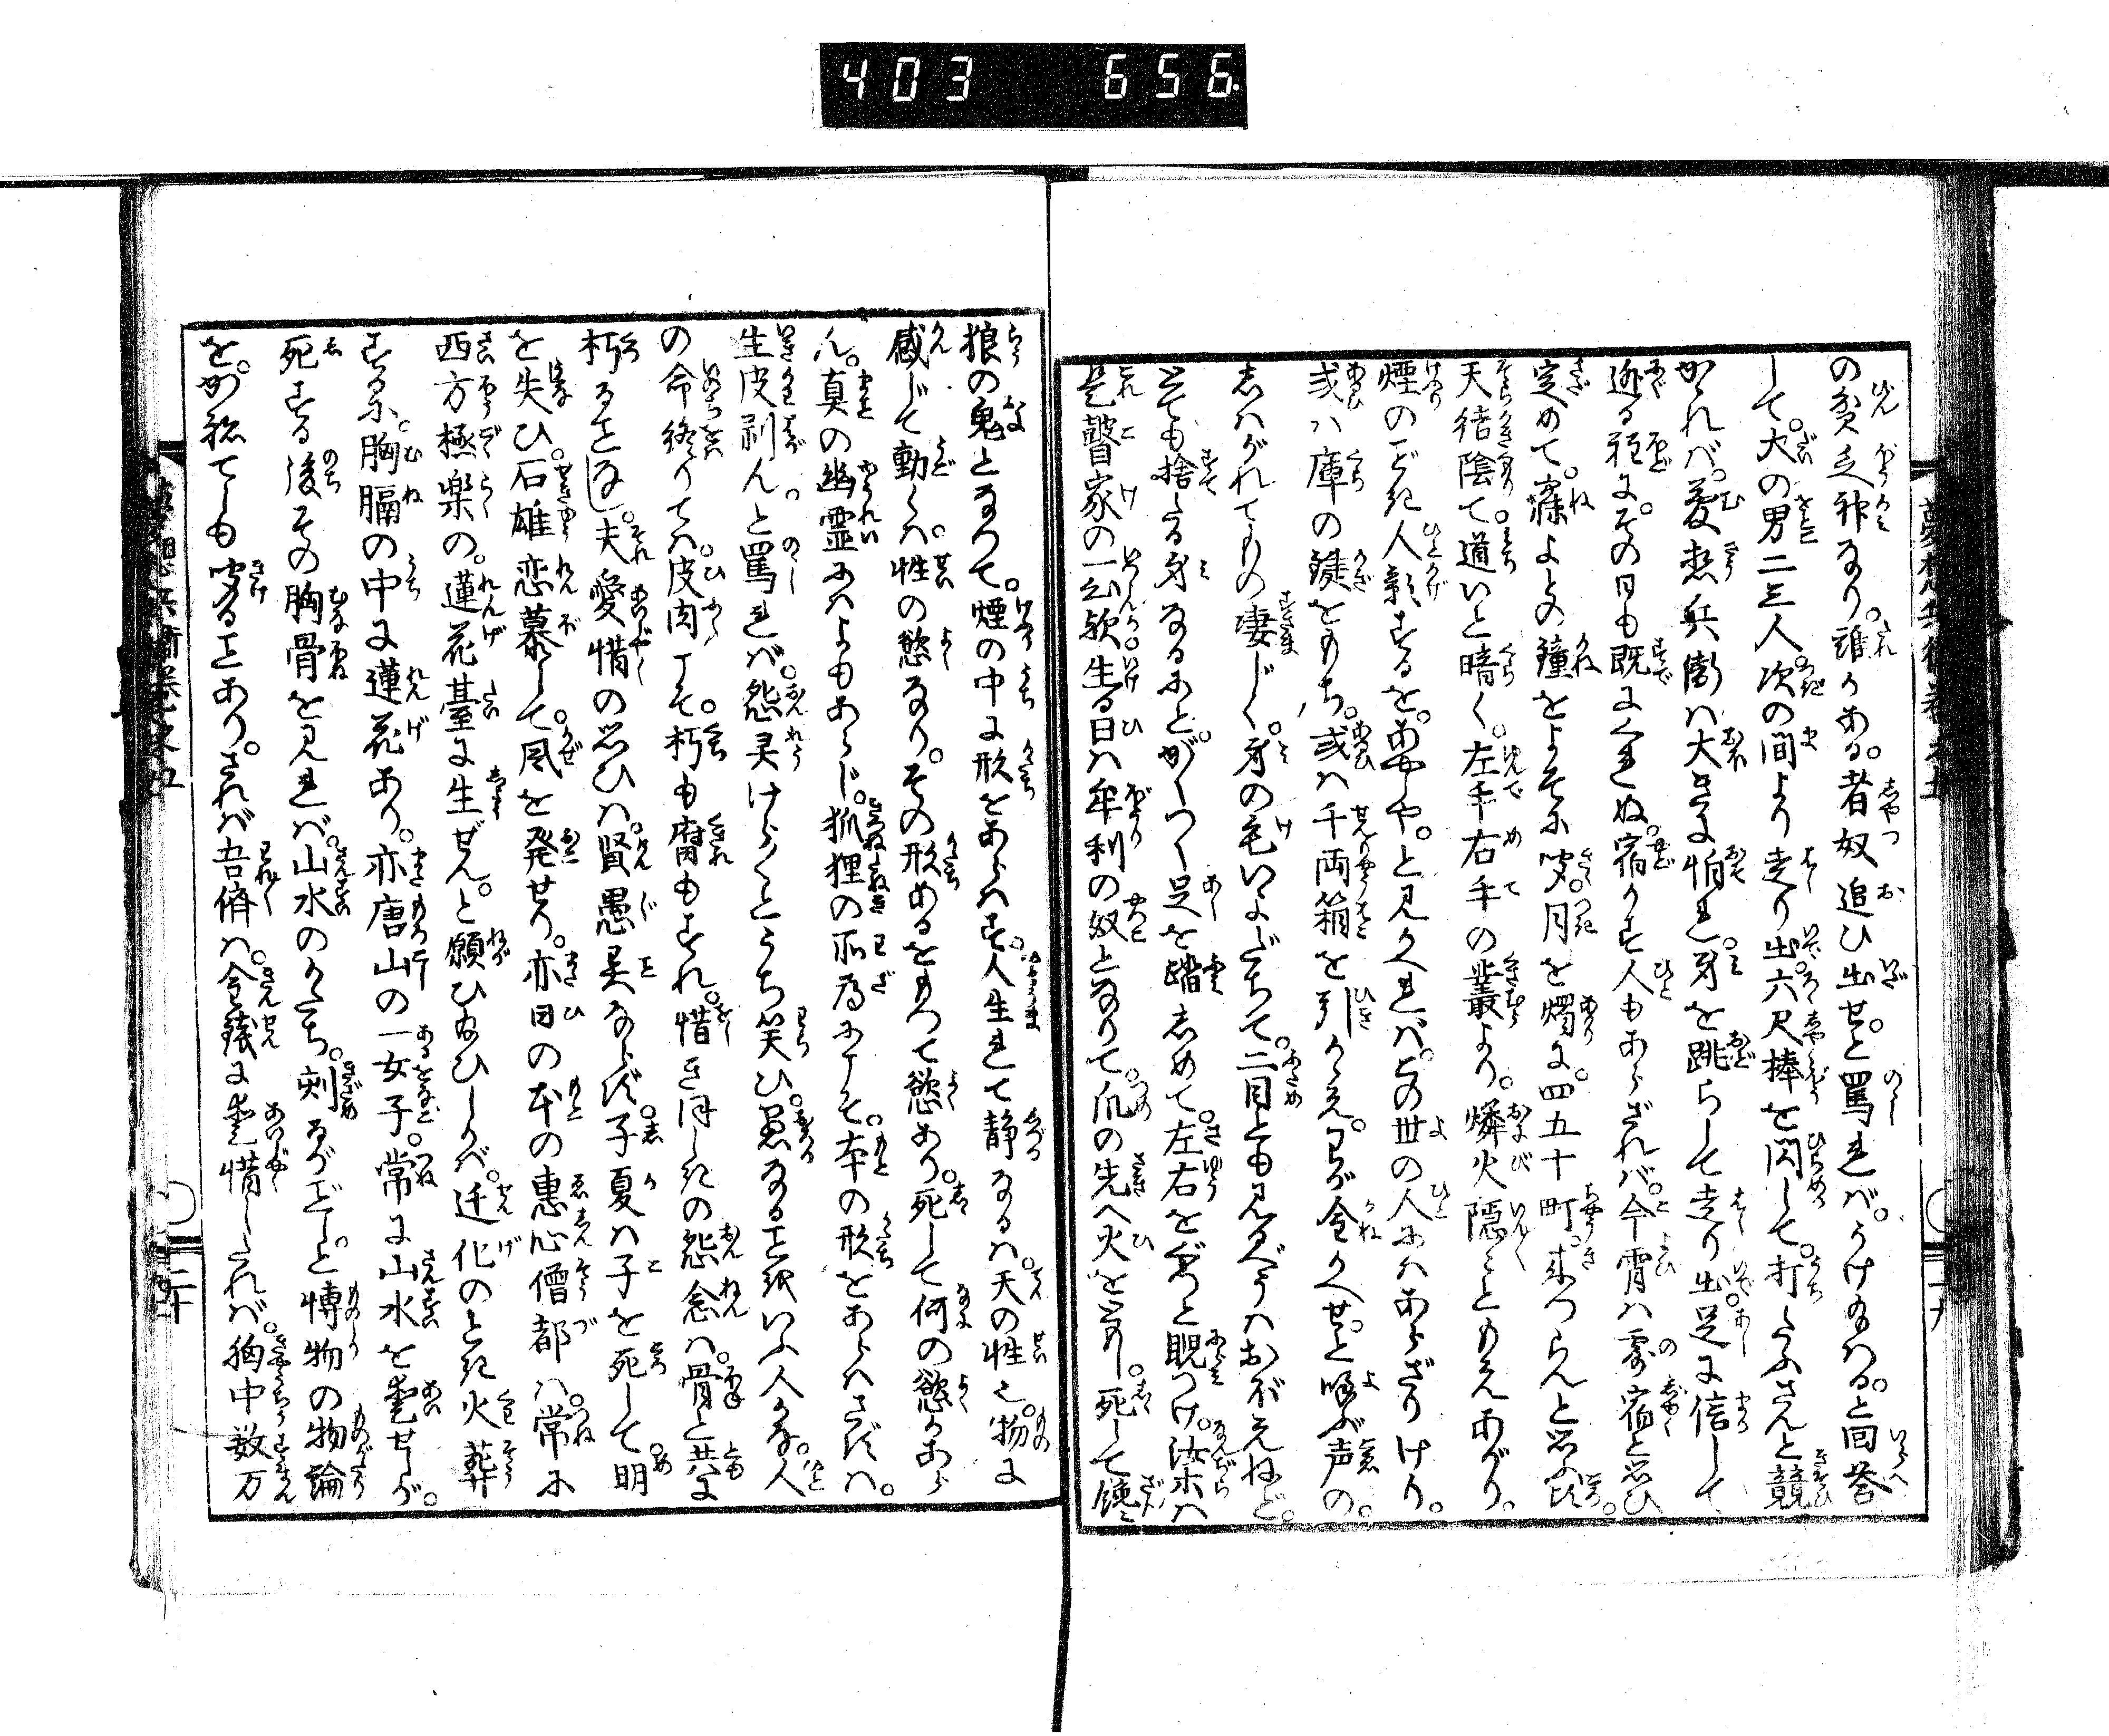 403 656
の貧乏神なり。誰かある。者奴追ひ出せ。と罵れば。うけ給はる。と回答
して。大の男二三人次の間より走り出。六尺棒を閃して。打たふさんと競
かゝれば。夢想兵衛は大きに怕れ。身を跳らして走り出。足に信して
逃る程に。その日も既にくれぬ。宿かす人もあらざれば。今宵は野宿と思ひ
定めて。寐よとの鐘をよそに聞。月を燭に。四五十町。来つらんと思ふ比。
天結陰て。道いと暗く。左手右手の叢より。燐火隠々ともえあがり。
煙のごとき人影するを。あやしや。と見かへれば。この世の人にはあらざりけり。
或は庫の鍵をもち。或は千両箱を引かゝえ。わが金かへせと喚ぶ声の。
しはがれてもの凄じく。身の毛いよだちて。二目とも見るべうはおぼえねど。
とても捨たる身なるにと。がくつく足を踏しめて。左右をきつと睨つけ。汝等は
是瞽家の一公歟。生る日は牟利の奴となりて。爪の先へ火をともし。死して饞
狼の鬼となつて。煙の中に形をあらはす。人生れて静なるは。天の性也。物に
感じて動くは。性の慾なり。その形あるをもつて慾あり。死して何の慾かあら
ん。真の幽霊にはよもあらじ。狐狸の所為にこそ。本の形をあらはさずは。
生皮剥ん。と罵れば。怨灵けら〳〵とうち笑ひ。愚なることをいふ人かな。人
の命終りては。皮肉こそ。朽も腐もすれ。惜きほしきの怨念は。骨と共に
朽ることなし。夫愛惜の思ひは。賢愚異ならず。子夏は子を死して明
を失ひ。石雄恋慕して。風を発せり。亦日の本の恵心僧都は。常に
西方極楽の。蓮花臺に生ぜん。と願ひ給ひしかば。迁化のとき火葬
するに。胸膈の中に蓮花あり。亦唐山の一女子。常に山水を愛せしが。
死する後その胸骨を見れば。山水のかたち。刻るがごとし。と博物の物論
を。かねても聞ることあり。されば吾儕は。金銭に愛惜したれば。胸中数万